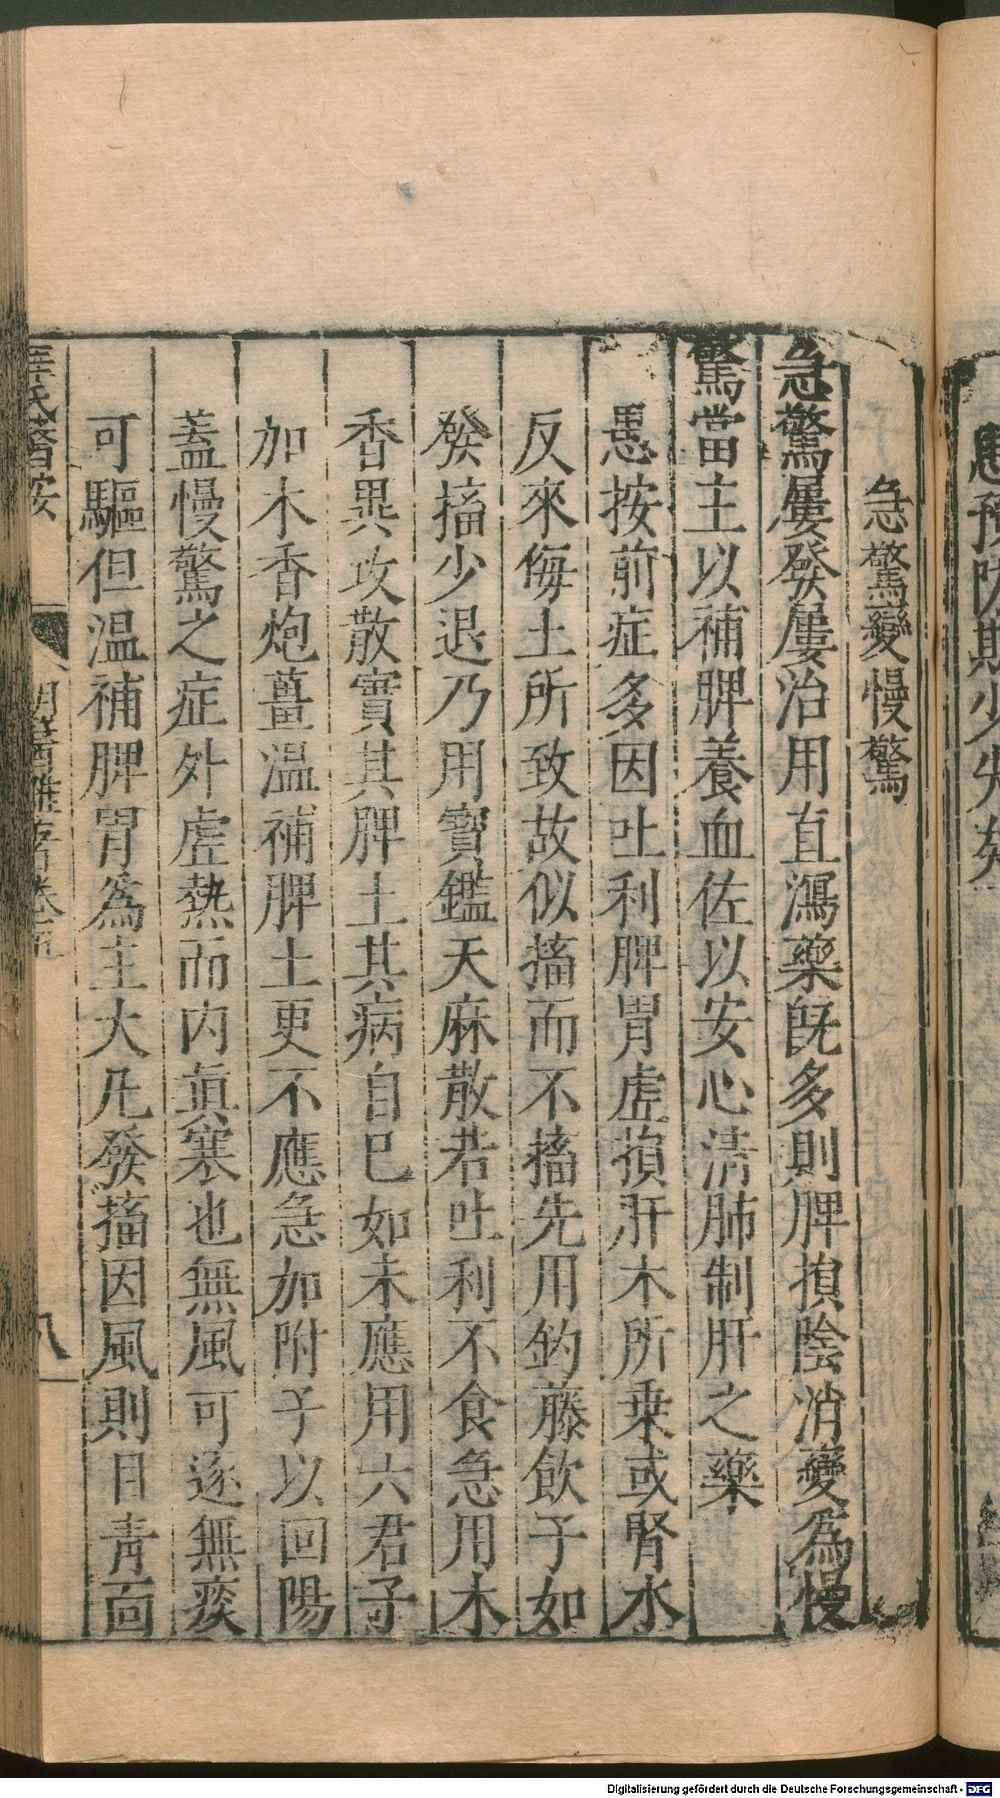 急驚變慢驚
急驚屢發屢治用直瀉藥旣多則脾損陰消變爲慢
驚當主以補脾養血佐以安心清肺制肝之藥
愚按前症多因吐利脾胃虛損肝木所乗或腎水
反來侮土所致故似搐而不搐先用釣藤飲子如
發搐少退乃用寶鑑天麻散若吐利不食急用木
香異攻散實其脾土其病自已如未應用六君子
加木香炮薑温補脾土更不應急加附子以回陽
蓋慢驚之症外虛熱而内眞寒也無風可逐無痰
可驅但温補脾胃爲主大凡發搐因風則目青面
薛氏醫按
八
愚按防期少先矣
Digitalisierung gefördert durch die Deutsche Forschungsgemeinschaft - DFG